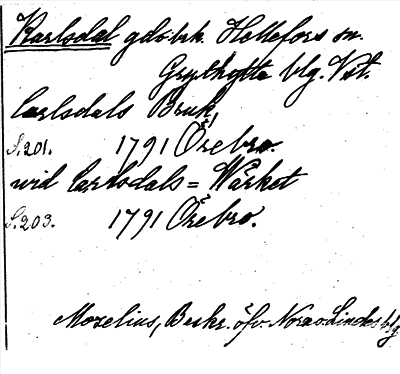 Karlsdal gds.brk. Hellefors sn.
Grythytte blg. Vst.
Carlsdals Bruk,
S.201. 1791 Örebro.
wid Carlsdals = Wärket
S.203. 1791 Örebro.
Morelius, Beskr. öfv. Nora o. Lindes blg